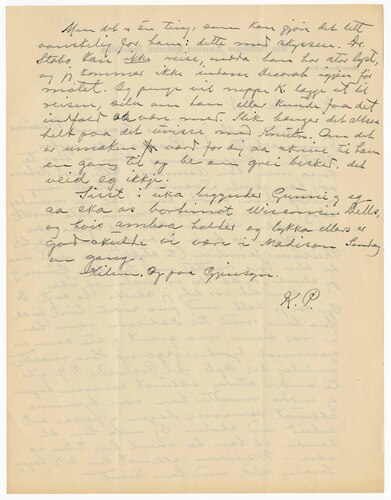 Men det er ein ting, som kan gjøre det litt
vanskelig for ham: dette med skyssen. Dr.
Stabo, kan ikke reise, endda han har stor lyst,
og P. kommer ikke indom Decorah igjen før
møtet. Og penge vil neppe K. lægge ut til
reisen, selv om han eller Kunde faa det
indfald aa være med. Slik hænger det altsaa
helt paa det uvisse med Knut. Om det er
umaken værd for dig aa skrive til ham
en gang til og be om grei besked, det
veid eg ikkje.
Sist i uka begynder Gunni og eg
aa eka os bortimot Wisconsin Dells,
og hvis bilen holder og lykka ellers er
god skulde vi være i Madison Sunday
en gang.
Hilsen, og paa Gjensyn.
K. P.